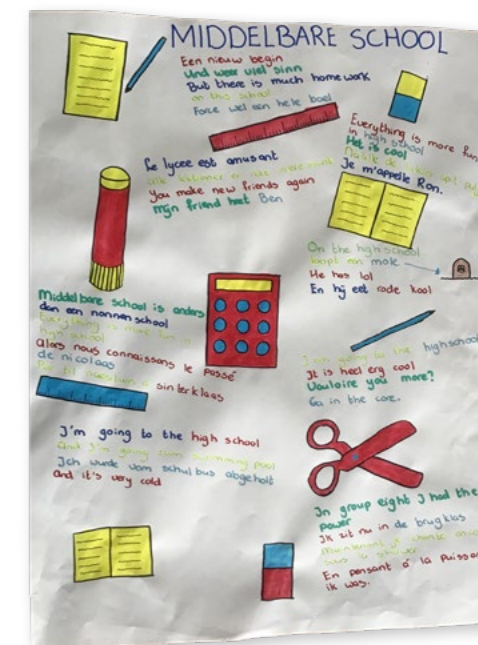 MIDDELBARE SCHOOL
Een nieuw begin
Und weer viel sinn
But there is much homework
on this school
Force wel een hele boel
Everything is more fun
in high school
Het is cool
Je m'appelle Ron.
Le lycee est amusant
You make new friends again
Mijn friend heet Ben
On the highschool
loopt een mole
He has lol
En hij eet rode kool
Middelbare school is anders
dan een nonnenschool
Everything is more fun in
highschool
Alors nous connaissons le passé
de nicolaas
sinterklaas
I am going to the highschool
It is heel erg cool
Vouloire you more?
Ga in the core.
I'm going to the high school
And I'm going zum swimming pool
Ich wurde vom schulbus abgeholt
and it's very cold
In group eight I had the
power
Ik zit nu in de brugklas
En pensant á la Puissan
ik was.